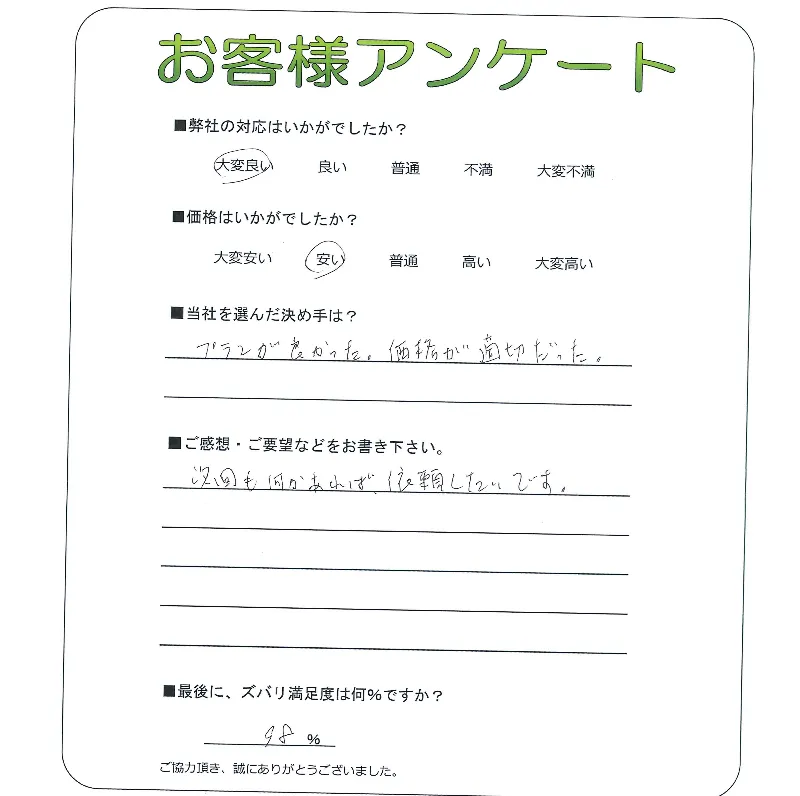 お客様アンケート
■弊社の対応はいかがでしたか？
大変良い 良い 普通 不満 大変不満
■価格はいかがでしたか？
大変安い 安い 普通 高い 大変高い
■当社を選んだ決め手は？
プランが良かった。価格が適切だった。
■ご感想・ご要望などをお書き下さい。
次回も何かあれば、依頼したいです。
■最後に、ズバリ満足度は何％ですか？
98 ％
ご協力頂き、誠にありがとうございました。